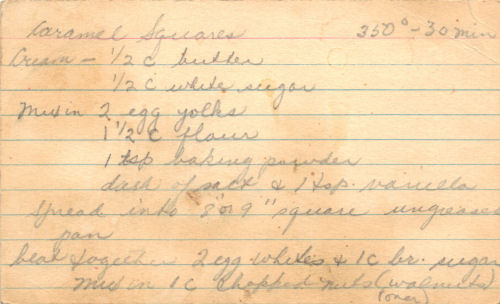 Caramel Squares 350° - 30 min
Cream - 1/2 c butter
1/2 c white sugar
Mix in 2 egg yolks
1 1/2 c flour
1 tsp baking powder
dash of salt & 1 tsp. vanilla
Spread into 8" or 9" square ungreased
pan
beat together 2 egg whites & 1 c br. sugar
Mix in 1 c chopped nuts (walnuts)
(over)